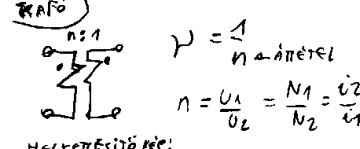 TRAFÓ
n:1
ν = 1/n ← ÁTTÉTEL
n = U1/U2 = N1/N2 = i2/i1
HELYETTESÍTŐ KÉP: